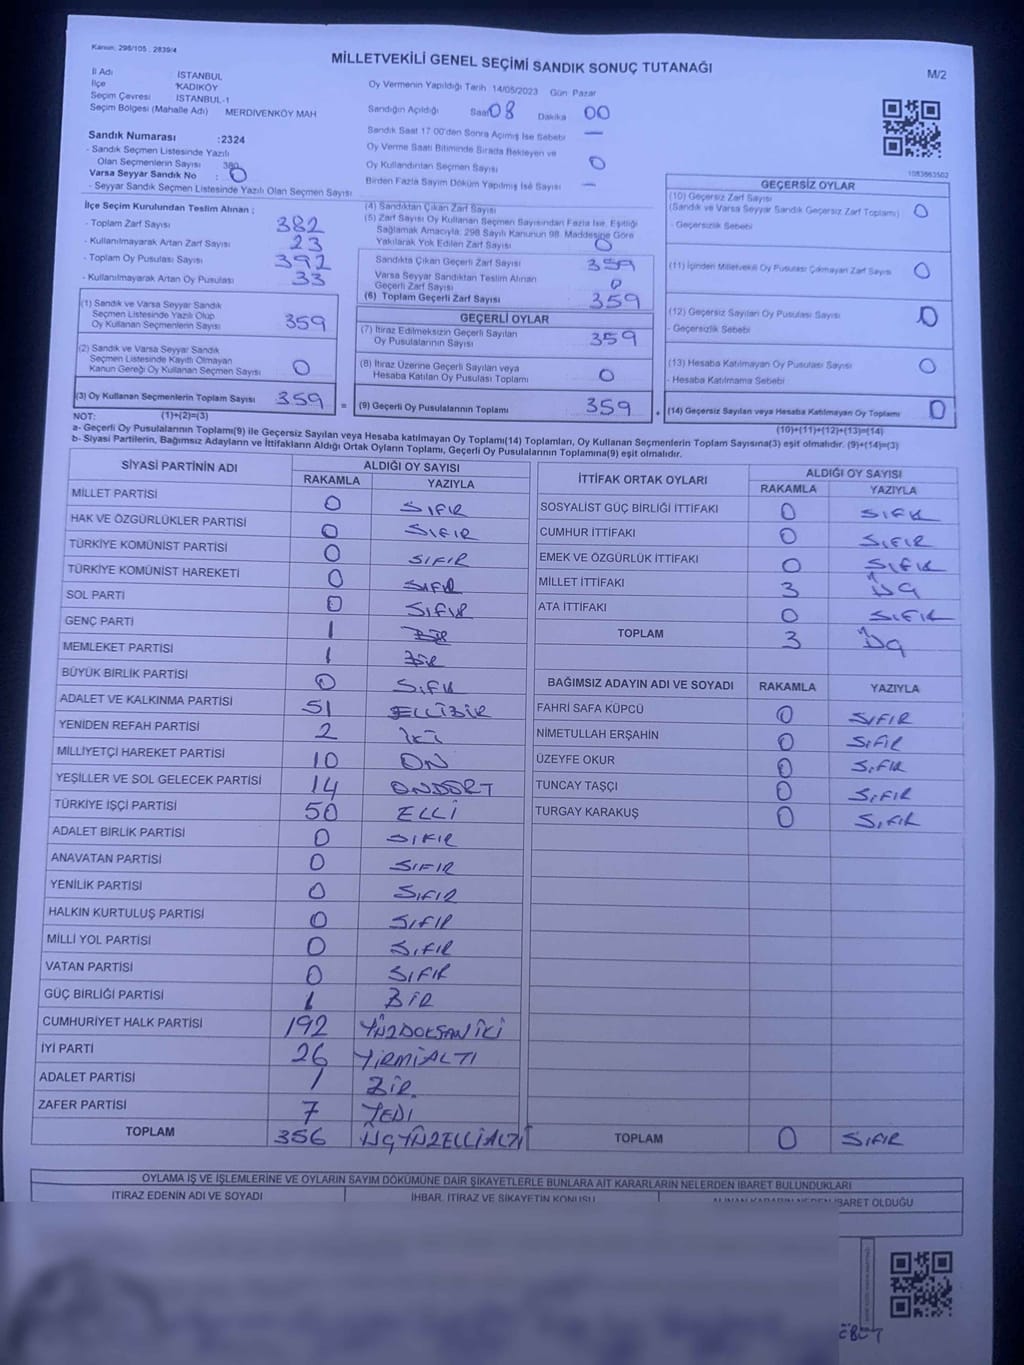 Kanun: 298/105 : 2839/4
MİLLETVEKİLİ GENEL SEÇİMİ SANDIK SONUÇ TUTANAĞI
M/2
İl Adı İSTANBUL
İlçe KADIKÖY
Seçim Çevresi İSTANBUL-1
Seçim Bölgesi (Mahalle Adı) MERDİVENKÖY MAH
Sandık Numarası :2324
- Sandık Seçmen Listesinde Yazılı
Olan Seçmenlerin Sayısı : 380
Varsa Seyyar Sandık No : 0
- Seyyar Sandık Seçmen Listesinde Yazılı Olan Seçmen Sayısı
Oy Vermenin Yapıldığı Tarih 14/05/2023 Gün Pazar
Sandığın Açıldığı Saat 08 Dakika 00
Sandık Saat 17 00'den Sonra Açımış İse Sebebi —
Oy Verme Saati Bitiminde Sırada Bekleyen ve
Oy Kullandırılan Seçmen Sayısı 0
Birden Fazla Sayım Döküm Yapılmış İse Sayısı —
1083863502
İlçe Seçim Kurulundan Teslim Alınan ;
- Toplam Zarf Sayısı 382
- Kullanılmayarak Artan Zarf Sayısı 23
- Toplam Oy Pusulası Sayısı 392
- Kullanılmayarak Artan Oy Pusulası 33
(1) Sandık ve Varsa Seyyar Sandık
Seçmen Listesinde Yazılı Olup
Oy Kullanan Seçmenlerin Sayısı 359
(2) Sandık ve Varsa Seyyar Sandık
Seçmen Listesinde Kayıtlı Olmayan
Kanun Gereği Oy Kullanan Seçmen Sayısı 0
(3) Oy Kullanan Seçmenlerin Toplam Sayısı 359 =
(4) Sandıktan Çıkan Zarf Sayısı
(5) Zarf Sayısı Oy Kullanan Seçmen Sayısından Fazla İse, Eşitliği
Sağlamak Amacıyla; 298 Sayılı Kanunun 98. Maddesine Göre
Yakılarak Yok Edilen Zarf Sayısı 0
Sandıkta Çıkan Geçerli Zarf Sayısı 359
Varsa Seyyar Sandıktan Teslim Alınan
Geçerli Zarf Sayısı 0
(6) Toplam Geçerli Zarf Sayısı 359
GEÇERLİ OYLAR
(7) İtiraz Edilmeksizin Geçerli Sayılan
Oy Pusulalarının Sayısı 359
(8) İtiraz Üzerine Geçerli Sayılan veya
Hesaba Katılan Oy Pusulası Toplamı 0
(9) Geçerli Oy Pusulalarının Toplamı 359 +
GEÇERSİZ OYLAR
(10) Geçersiz Zarf Sayısı
(Sandık ve Varsa Seyyar Sandık Geçersiz Zarf Toplamı) 0
- Geçersizlik Sebebi
(11) İçinden Milletvekili Oy Pusulası Çıkmayan Zarf Sayısı 0
(12) Geçersiz Sayılan Oy Pusulası Sayısı 0
- Geçersizlik Sebebi
(13) Hesaba Katılmayan Oy Pusulası Sayısı 0
- Hesaba Katılmama Sebebi
(14) Geçersiz Sayılan veya Hesaba Katılmayan Oy Toplamı 0
NOT: (1)+(2)=(3)
(10)+(11)+(12)+(13)=(14)
a- Geçerli Oy Pusulalarının Toplamı(9) ile Geçersiz Sayılan veya Hesaba katılmayan Oy Toplamı(14) Toplamları, Oy Kullanan Seçmenlerin Toplam Sayısına(3) eşit olmalıdır. (9)+(14)=(3)
b- Siyasi Partilerin, Bağımsız Adayların ve İttifakların Aldığı Ortak Oyların Toplamı, Geçerli Oy Pusulalarının Toplamına(9) eşit olmalıdır.
SİYASİ PARTİNİN ADI ALDIĞI OY SAYISI
RAKAMLA YAZIYLA
MİLLET PARTİSİ 0 SIFIR
HAK VE ÖZGÜRLÜKLER PARTİSİ 0 SIFIR
TÜRKİYE KOMÜNİST PARTİSİ 0 SIFIR
TÜRKİYE KOMÜNİST HAREKETİ 0 SIFIR
SOL PARTİ 0 SIFIR
GENÇ PARTİ 1 BİR
MEMLEKET PARTİSİ 1 BİR
BÜYÜK BİRLİK PARTİSİ 0 SIFIR
ADALET VE KALKINMA PARTİSİ 51 ELLİBİR
YENİDEN REFAH PARTİSİ 2 İKİ
MİLLİYETÇİ HAREKET PARTİSİ 10 ON
YEŞİLLER VE SOL GELECEK PARTİSİ 14 ONDÖRT
TÜRKİYE İŞÇİ PARTİSİ 50 ELLİ
ADALET BİRLİK PARTİSİ 0 SIFIR
ANAVATAN PARTİSİ 0 SIFIR
YENİLİK PARTİSİ 0 SIFIR
HALKIN KURTULUŞ PARTİSİ 0 SIFIR
MİLLİ YOL PARTİSİ 0 SIFIR
VATAN PARTİSİ 0 SIFIR
GÜÇ BİRLİĞİ PARTİSİ 1 BİR
CUMHURİYET HALK PARTİSİ 192 YÜZDOKSANİKİ
İYİ PARTİ 26 YİRMİALTI
ADALET PARTİSİ 1 BİR
ZAFER PARTİSİ 7 YEDİ
TOPLAM 356 ÜÇYÜZELLİALTI
İTTİFAK ORTAK OYLARI ALDIĞI OY SAYISI
RAKAMLA YAZIYLA
SOSYALİST GÜÇ BİRLİĞİ İTTİFAKI 0 SIFIR
CUMHUR İTTİFAKI 0 SIFIR
EMEK VE ÖZGÜRLÜK İTTİFAKI 0 SIFIR
MİLLET İTTİFAKI 3 ÜÇ
ATA İTTİFAKI 0 SIFIR
TOPLAM 3 ÜÇ
BAĞIMSIZ ADAYIN ADI VE SOYADI RAKAMLA YAZIYLA
FAHRİ SAFA KÜPCÜ 0 SIFIR
NİMETULLAH ERŞAHİN 0 SIFIR
ÜZEYFE OKUR 0 SIFIR
TUNCAY TAŞÇI 0 SIFIR
TURGAY KARAKUŞ 0 SIFIR
TOPLAM 0 SIFIR
OYLAMA İŞ VE İŞLEMLERİNE VE OYLARIN SAYIM DÖKÜMÜNE DAİR ŞİKAYETLERLE BUNLARA AİT KARARLARIN NELERDEN İBARET BULUNDUKLARI
İTİRAZ EDENİN ADI VE SOYADI İHBAR, İTİRAZ VE ŞİKAYETİN KONUSU ALINAN KARARIN NEDEN İBARET OLDUĞU